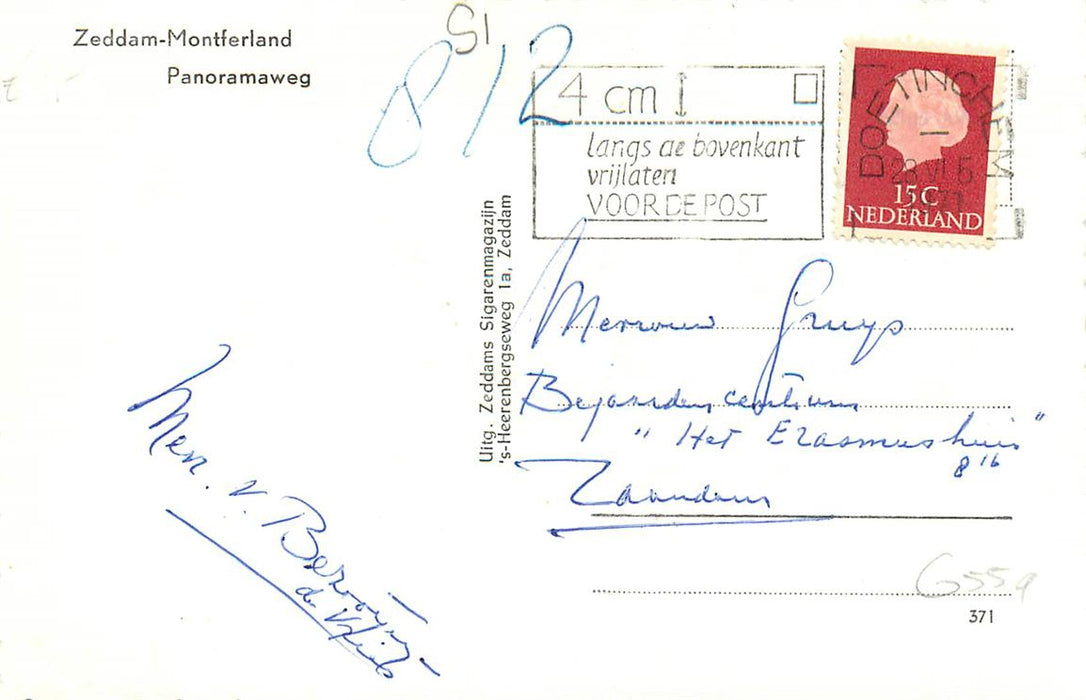 Zeddam-Montferland
Panoramaweg
SI
812
4 cm
langs de bovenkant
vrijlaten
VOOR DE POST
DOETINCHEM
28 VI 6
1971
15 C
NEDERLAND
Uitg. Zeddams Sigarenmagazijn
's-Heerenbergseweg 1a, Zeddam
Mevrouw Gruyp
Bejaardencentrum
"Het Erasmushuis"
816
Zaandam
Men. v.
de
G55a
371